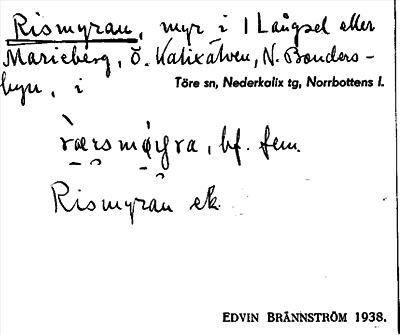 Rismyran, myr i 1 Långsel eller
Marieberg, Ö. Kalixälven, N. Bonders-
byn, i
Töre sn, Nederkalix tg, Norrbottens l.
bf. fem.
Rismyran ek.
EDVIN BRÄNNSTRÖM 1938.